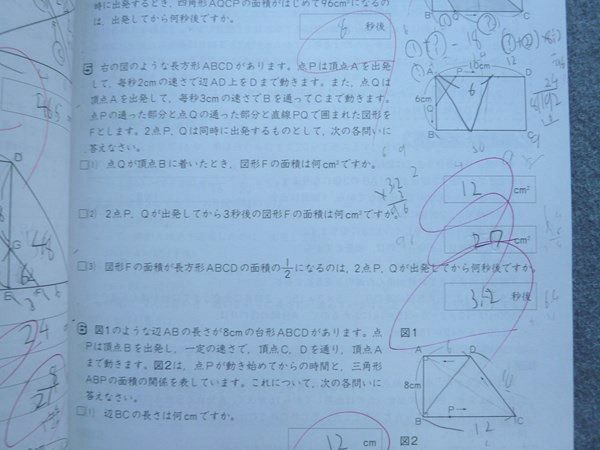 時に出発するとき，四角形AQCPの面積がはじめて96cm²になるの
は，出発してから何秒後ですか。
6 秒後
5 右の図のような長方形ABCDがあります。点Pは頂点Aを出発し
て，毎秒2cmの速さで辺AD上をDまで動きます。また，点Qは
頂点Aを出発して，毎秒3cmの速さでBを通ってCまで動きます。
点Pの通った部分と点Qの通った部分と直線PQで囲まれた図形を
Fとします。2点P，Qは同時に出発するものとして，次の各問いに
答えなさい。
A P 10cm D
6cm
B C
□(1) 点Qが頂点Bに着いたとき，図形Fの面積は何cm²ですか。
12 cm²
□(2) 2点P，Qが出発してから3秒後の図形Fの面積は何cm²ですか。
27 cm²
□(3) 図形Fの面積が長方形ABCDの面積の1/2になるのは，2点P，Qが出発してから何秒後ですか。
3.2 秒後
6 図1のような辺ABの長さが8cmの台形ABCDがあります。点
Pは頂点Bを出発し，一定の速さで，頂点C，Dを通り，頂点A
まで動きます。図2は，点Pが動き始めてからの時間と，三角形
ABPの面積の関係を表しています。これについて，次の各問いに
答えなさい。
図1
A D
8cm
B P C
12
□(1) 辺BCの長さは何cmですか。
12 cm
図2